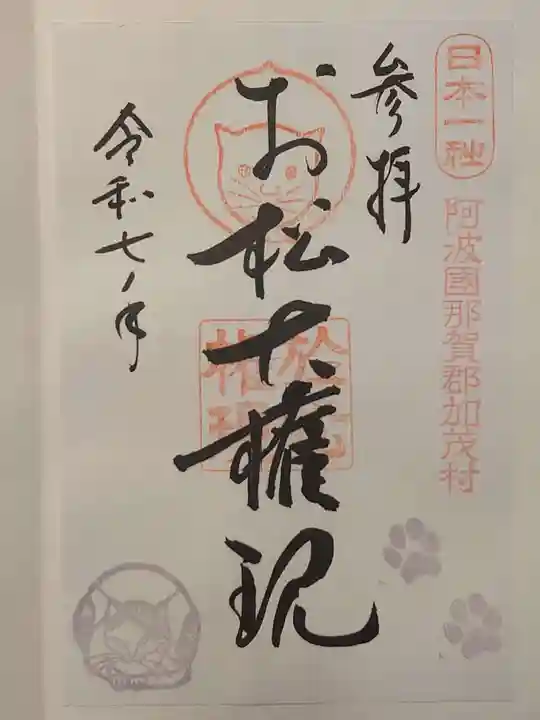 日本一社
阿波國那賀郡加茂村
参拝
お松大権現
令和七ノ年